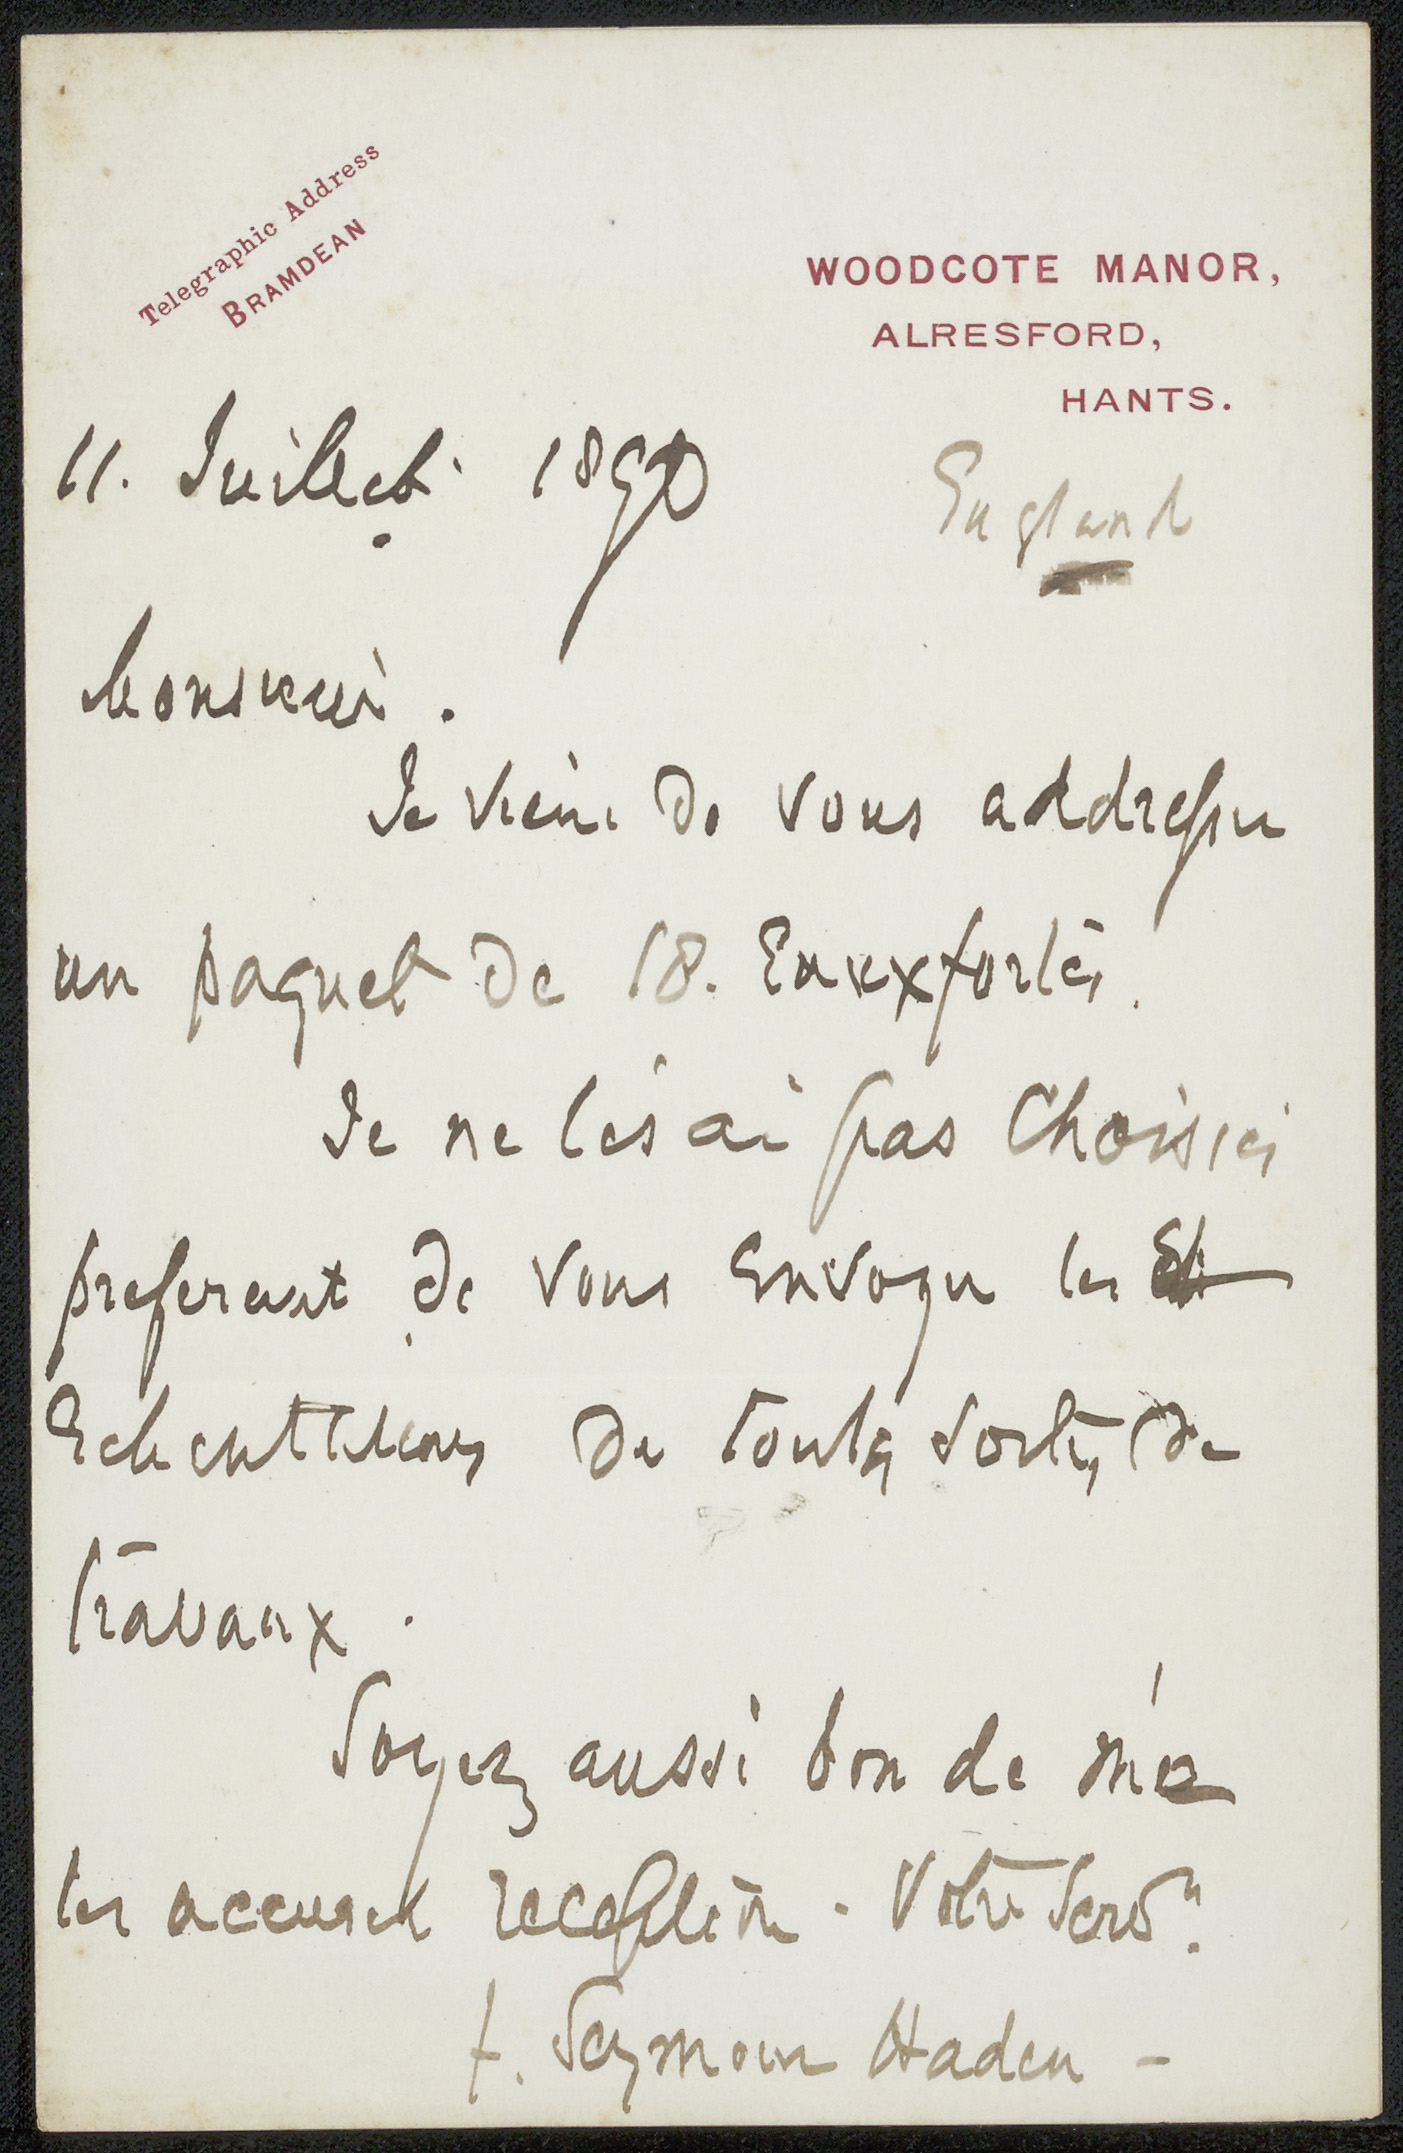 Telegraphic Address
BRAMDEAN
WOODCOTE MANOR,
ALRESFORD,
HANTS.
11. Juillet 1890
England
Monsieur.
Je viens de vous addresser
un paquet de 18. Eauxfortes.
Je ne les ai pas Choisies
preferant de vous Envoyer les
Echantillons de toutes sortes de
travaux.
Soyez aussi bon de m'en
les accuser reception - Votre Servr.
F. Seymour Haden -